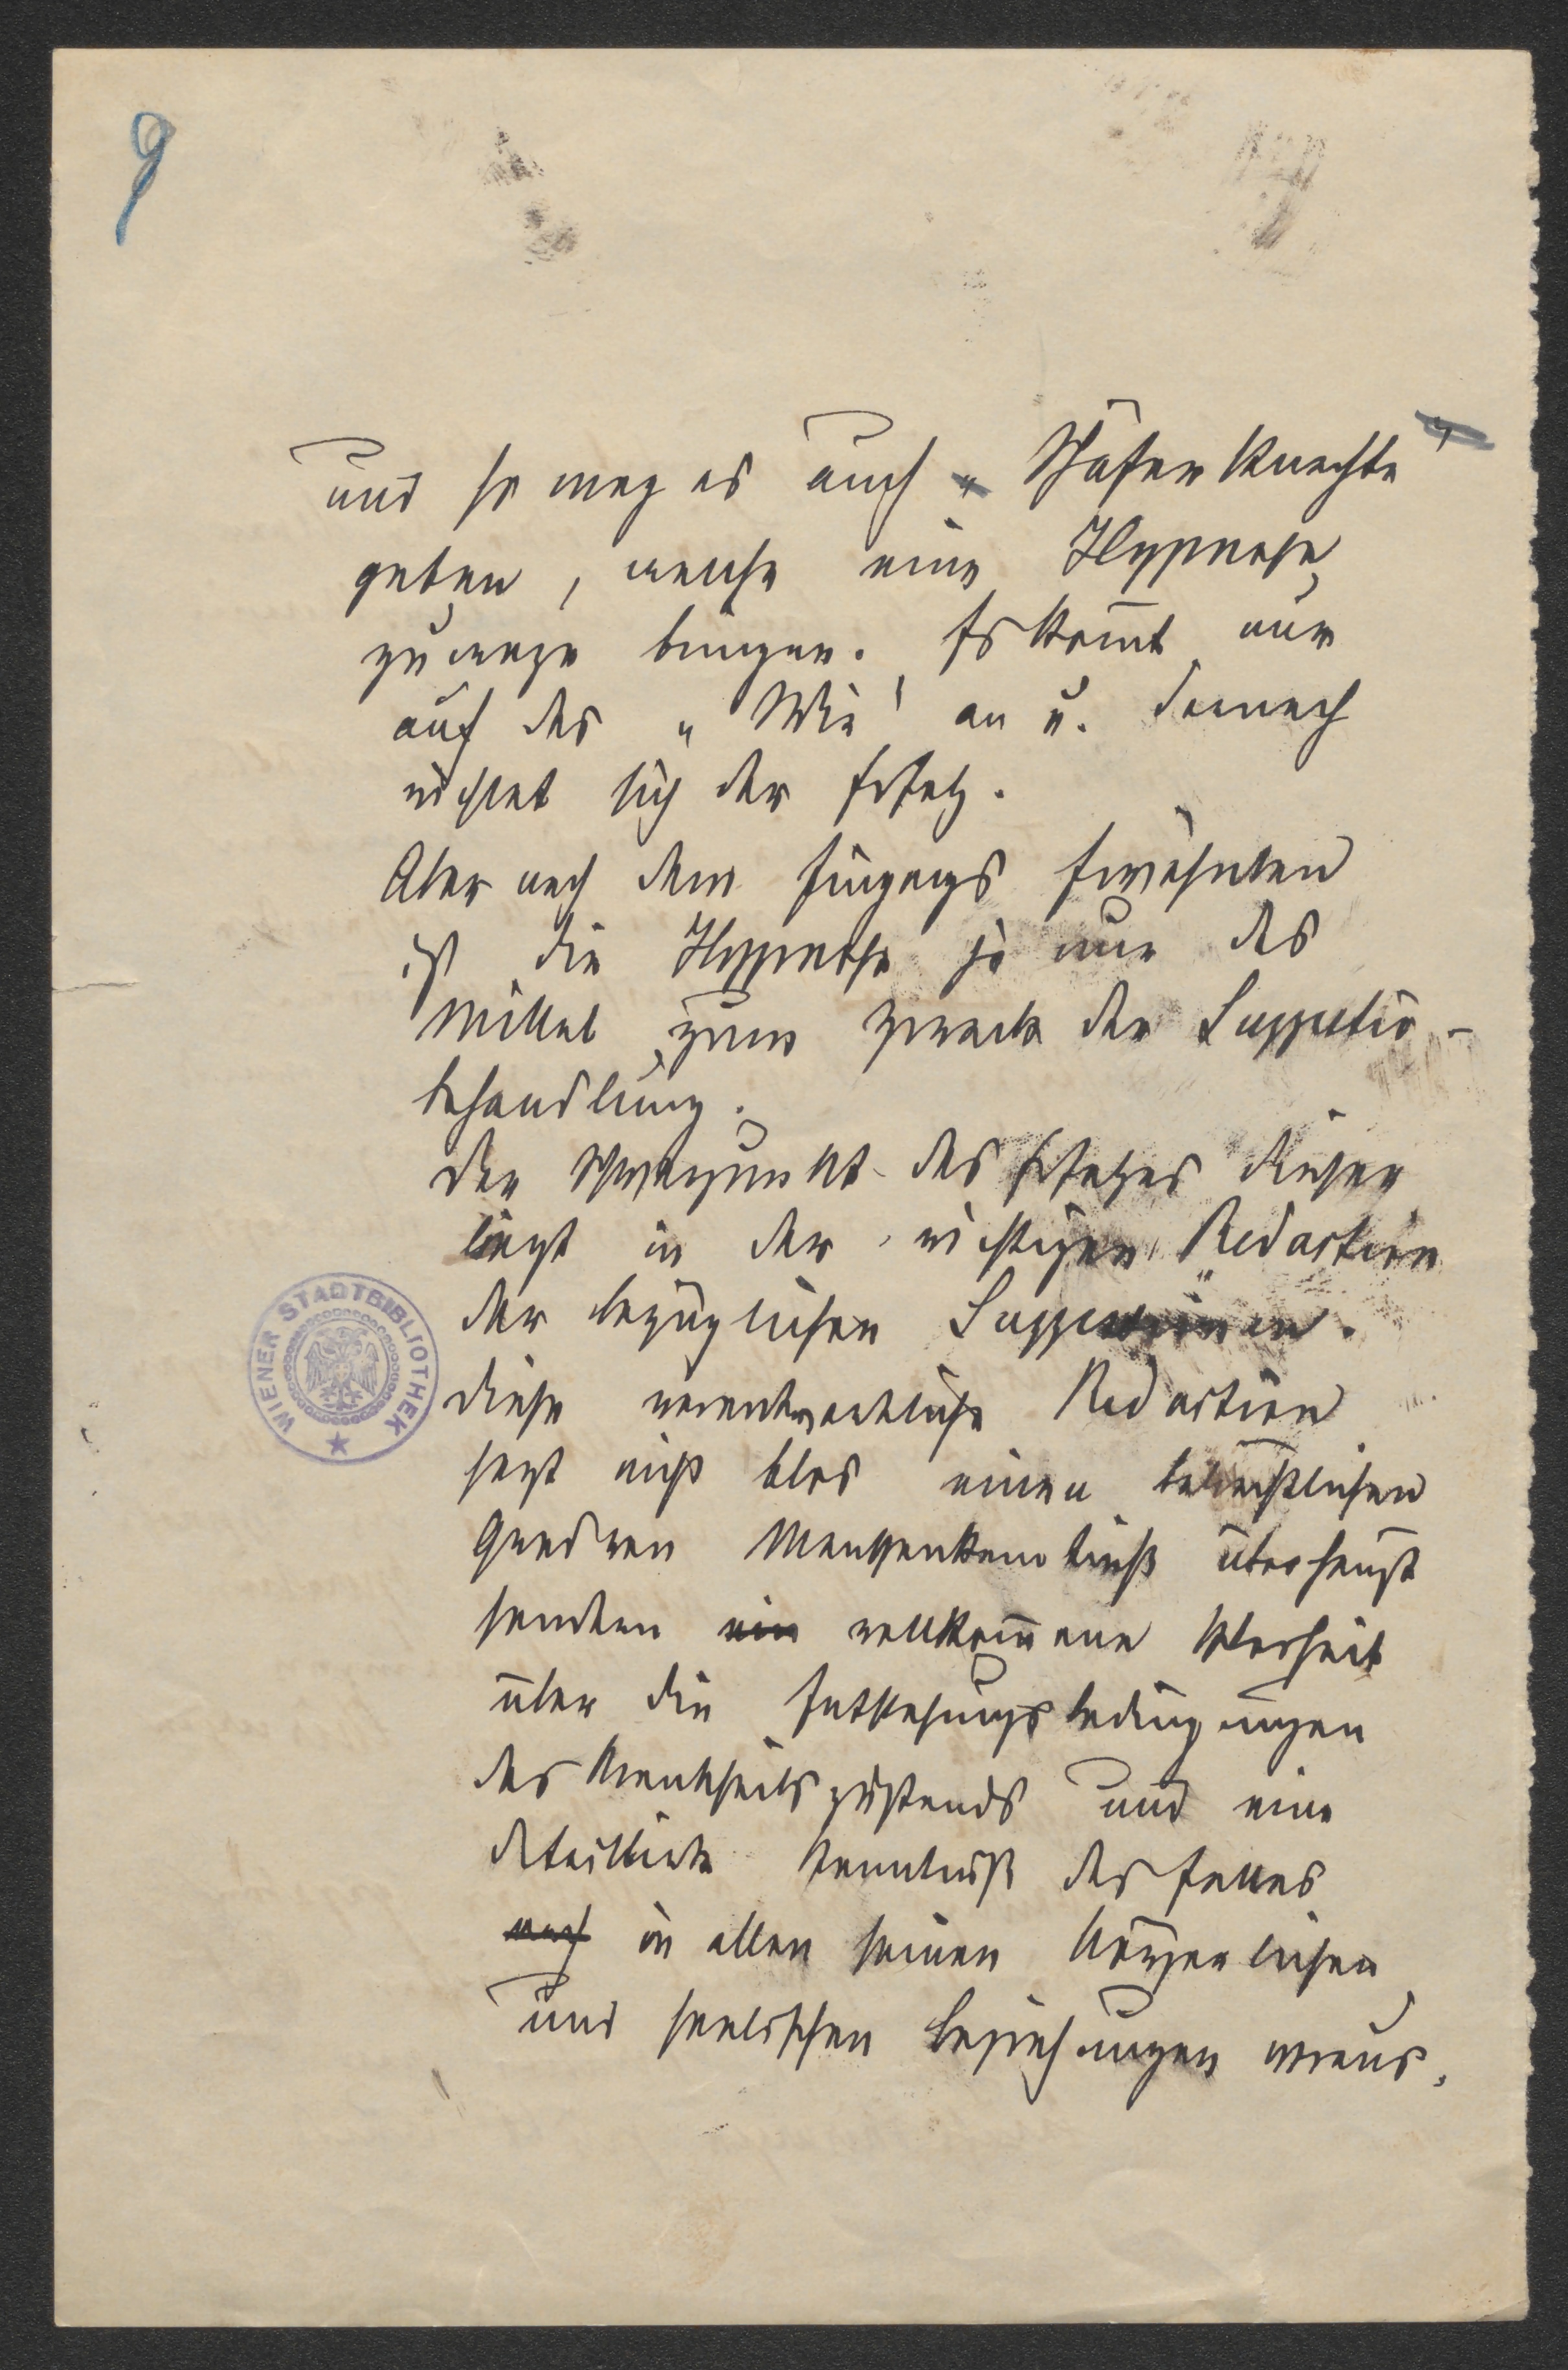 9
und so mag es auch „Schäferknechte“
geben, welche eine Hypnose
zuwege bringen. Es kom̄t nur
auf das „Wie“ an u. darnach
richtet sich der Erfolg.
Aber nach dem Eingangs Erwähnten
ist die Hypnose ja nur das
Mittel zum Zweck der Suggestiv-
behandlung.
Der Schwerpunkt des Erfolges dieser
liegt in der „richtigen Redaction“
der bezüglichen Suggestionen.
Diese verantwortliche Redaction
setzt nicht blos einen beträchtlichen
Grad von Menschenkenntniß überhaupt
sondern ein vollkom̄ene Klarheit
über die Entstehungsbedingungen
des Krankheitszustands und eine
detaillirte Kenntniß des Falles
nach in allen seinen körperlichen
und seelischen Beziehungen voraus.
WIENER STADTBIBLIOTHEK